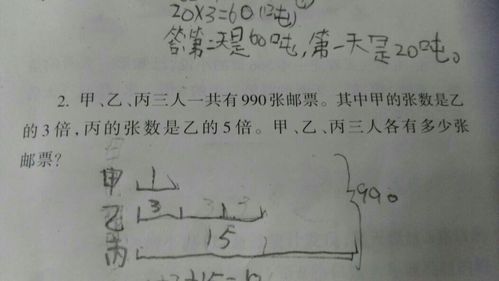 20×3=60(吨)
答第二天是60吨,第一天是20吨。
2. 甲、乙、丙三人一共有990张邮票。其中甲的张数是乙
的3倍,丙的张数是乙的5倍。甲、乙、丙三人各有多少张
邮票?
甲 1
乙 3
990
丙 15